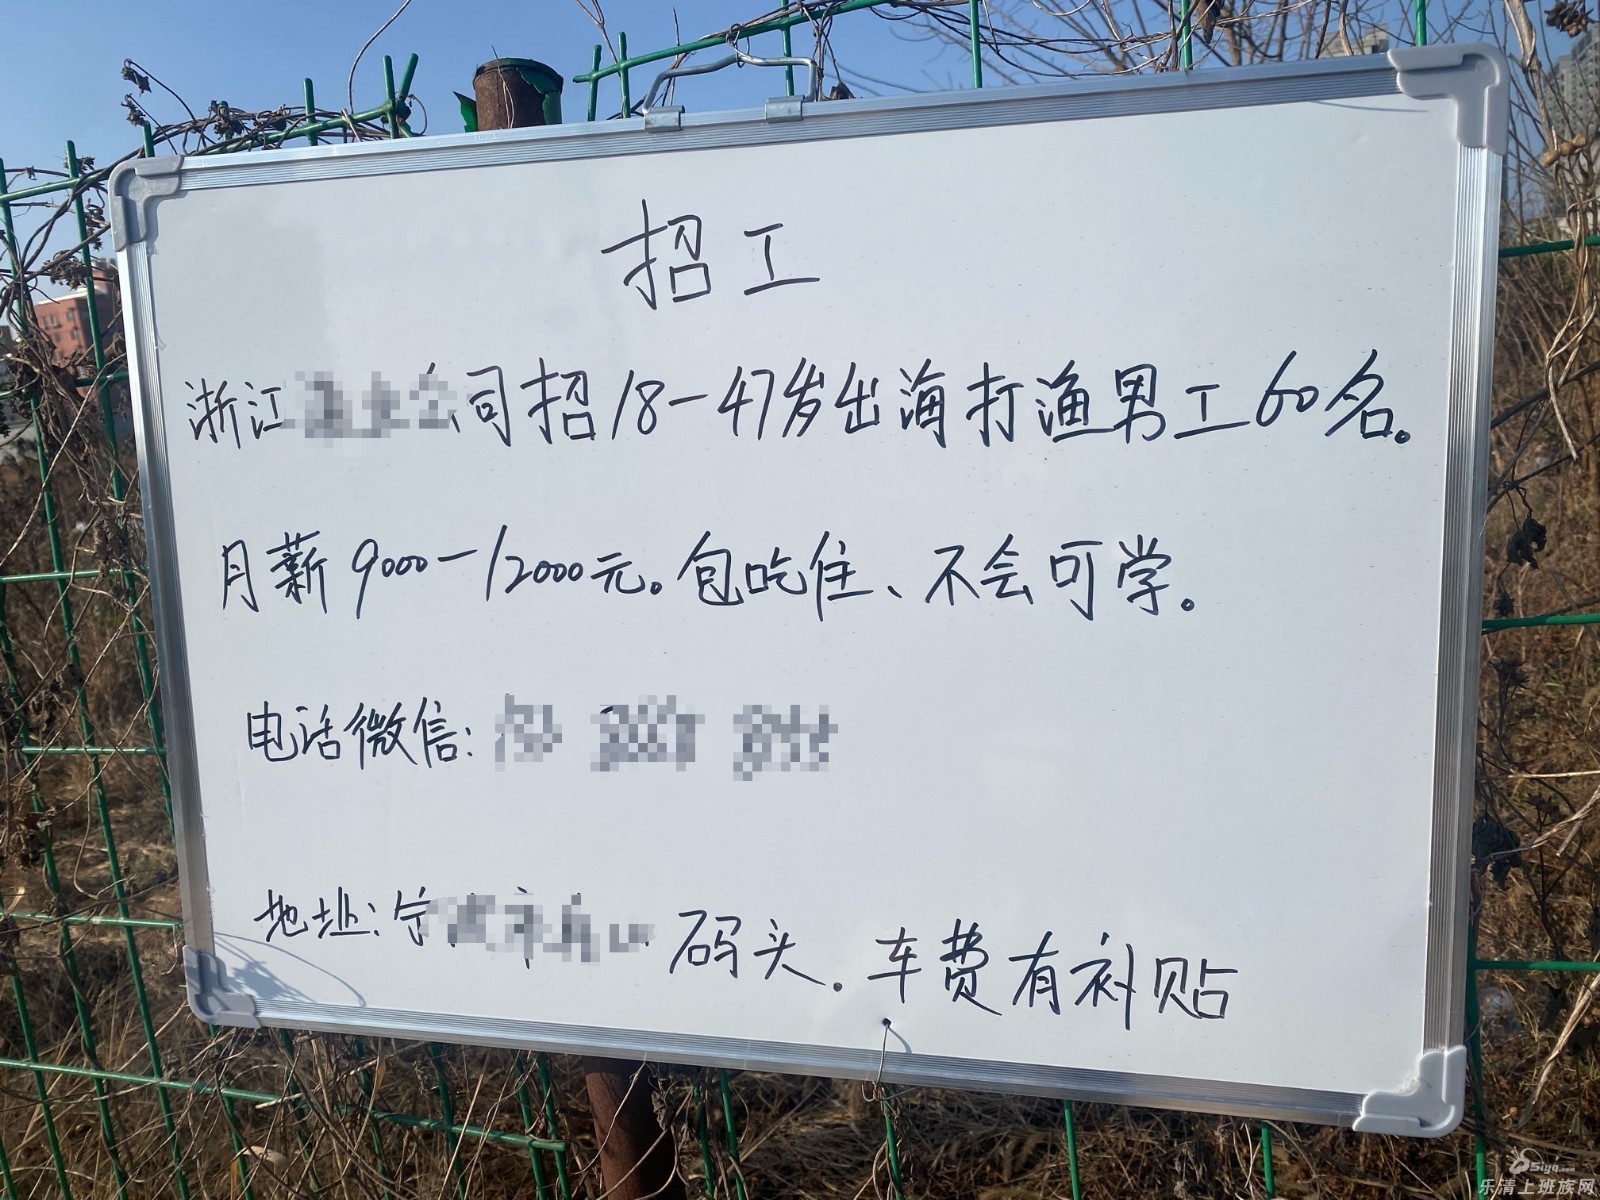 招工
浙江 公司招18-47岁出海打渔男工60名。
月薪9000-12000元。包吃住、不会可学。
电话微信:
地址:宁 市 码头.车费有补贴
85iyq.com
乐清上班族网